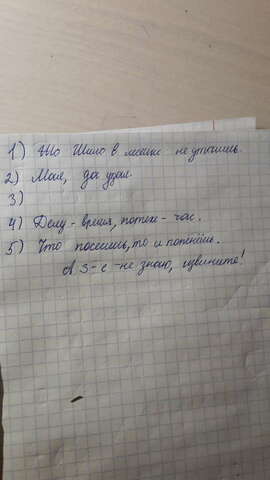 1) Шило в мешке не утаишь.
2) Мал, да удал.
3)
4) Делу - время, потехе - час.
5) Что посеешь, то и пожнёшь.
А 3-е - не знаю, извините!